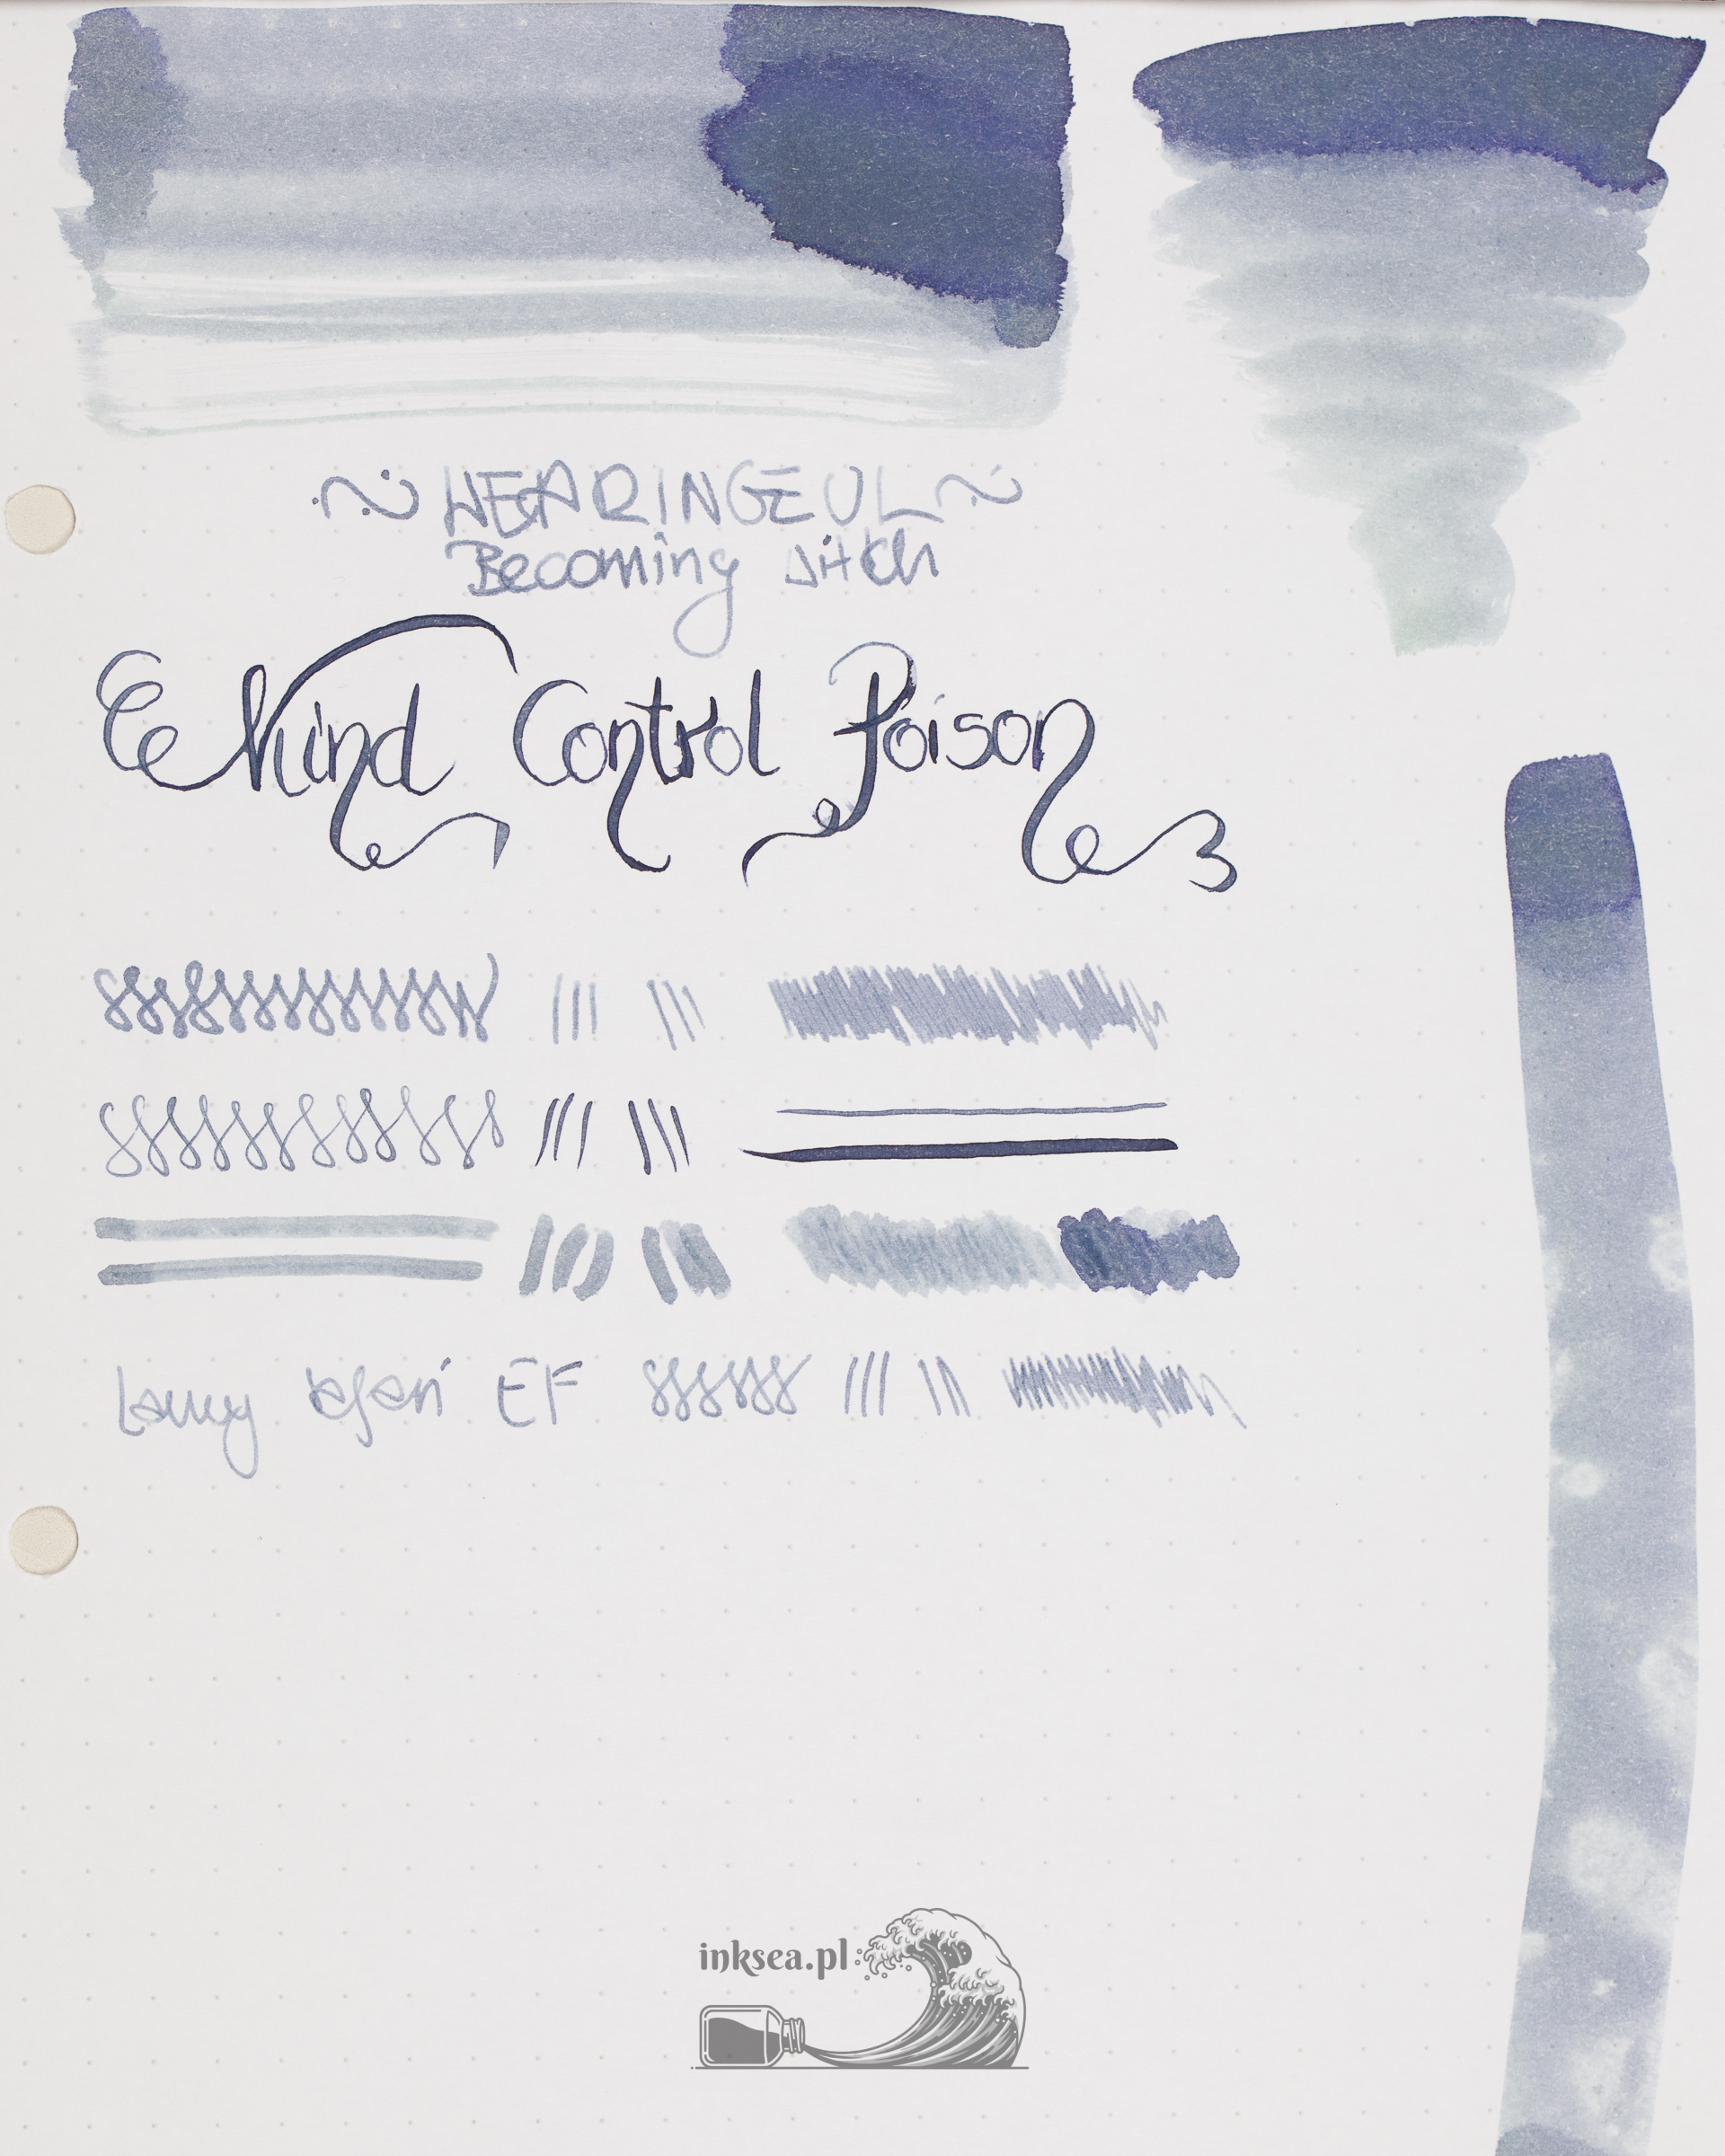 ~ WEARINGEUL ~
Becoming Witch
Mind Control Poison
Lamy Safari EF
inksea.pl